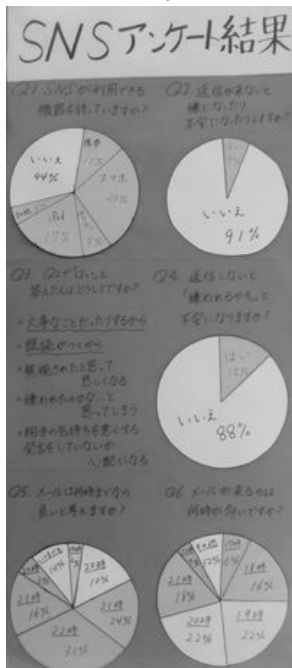 SNSアンケート結果
Q1 SNSが利用できる
機器を持っていますか?
いいえ
44%
スマホ
iPad
17%
5%
Q2 返信が来ないと
嫌になったり
不安になったりしますか?
はい
9%
いいえ
91%
Q3 Q2で「はい」と
答えた人はどうしてですか?
・大事なことだったりするから
・既読がつくから
・無視されたと思って
悲しくなる
・嫌われたのかな…と
思ってしまう
・相手の気持ちを悪くする
発言をしていないか
心配になる
Q4 返信しないと
「嫌われるかも」と
不安になりますか?
はい
12%
いいえ
88%
Q5 メールは何時までなら
良いと考えますか?
20時
10%
21時
24%
22時
31%
23時
16%
Q6 メールが来るのは
何時が多いですか?
18時
16%
19時
22%
20時
22%
21時
18%
その他
12%